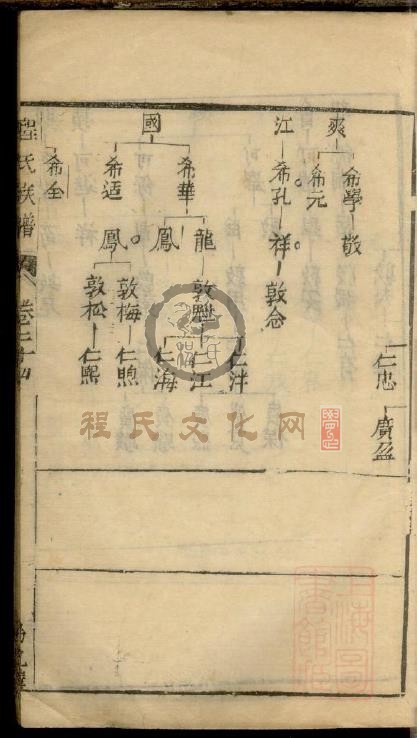 仁忠 廣盈
爽 希學 敬
希元
江 希孔 祥 敦念
國 希華 龍 敦 仁泮
仁江
仁海
鳳
希适 鳳 敦梅 仁煦
敦松 仁熙
希全
程氏族譜 卷二十四
程氏文化网
上海圖書館藏